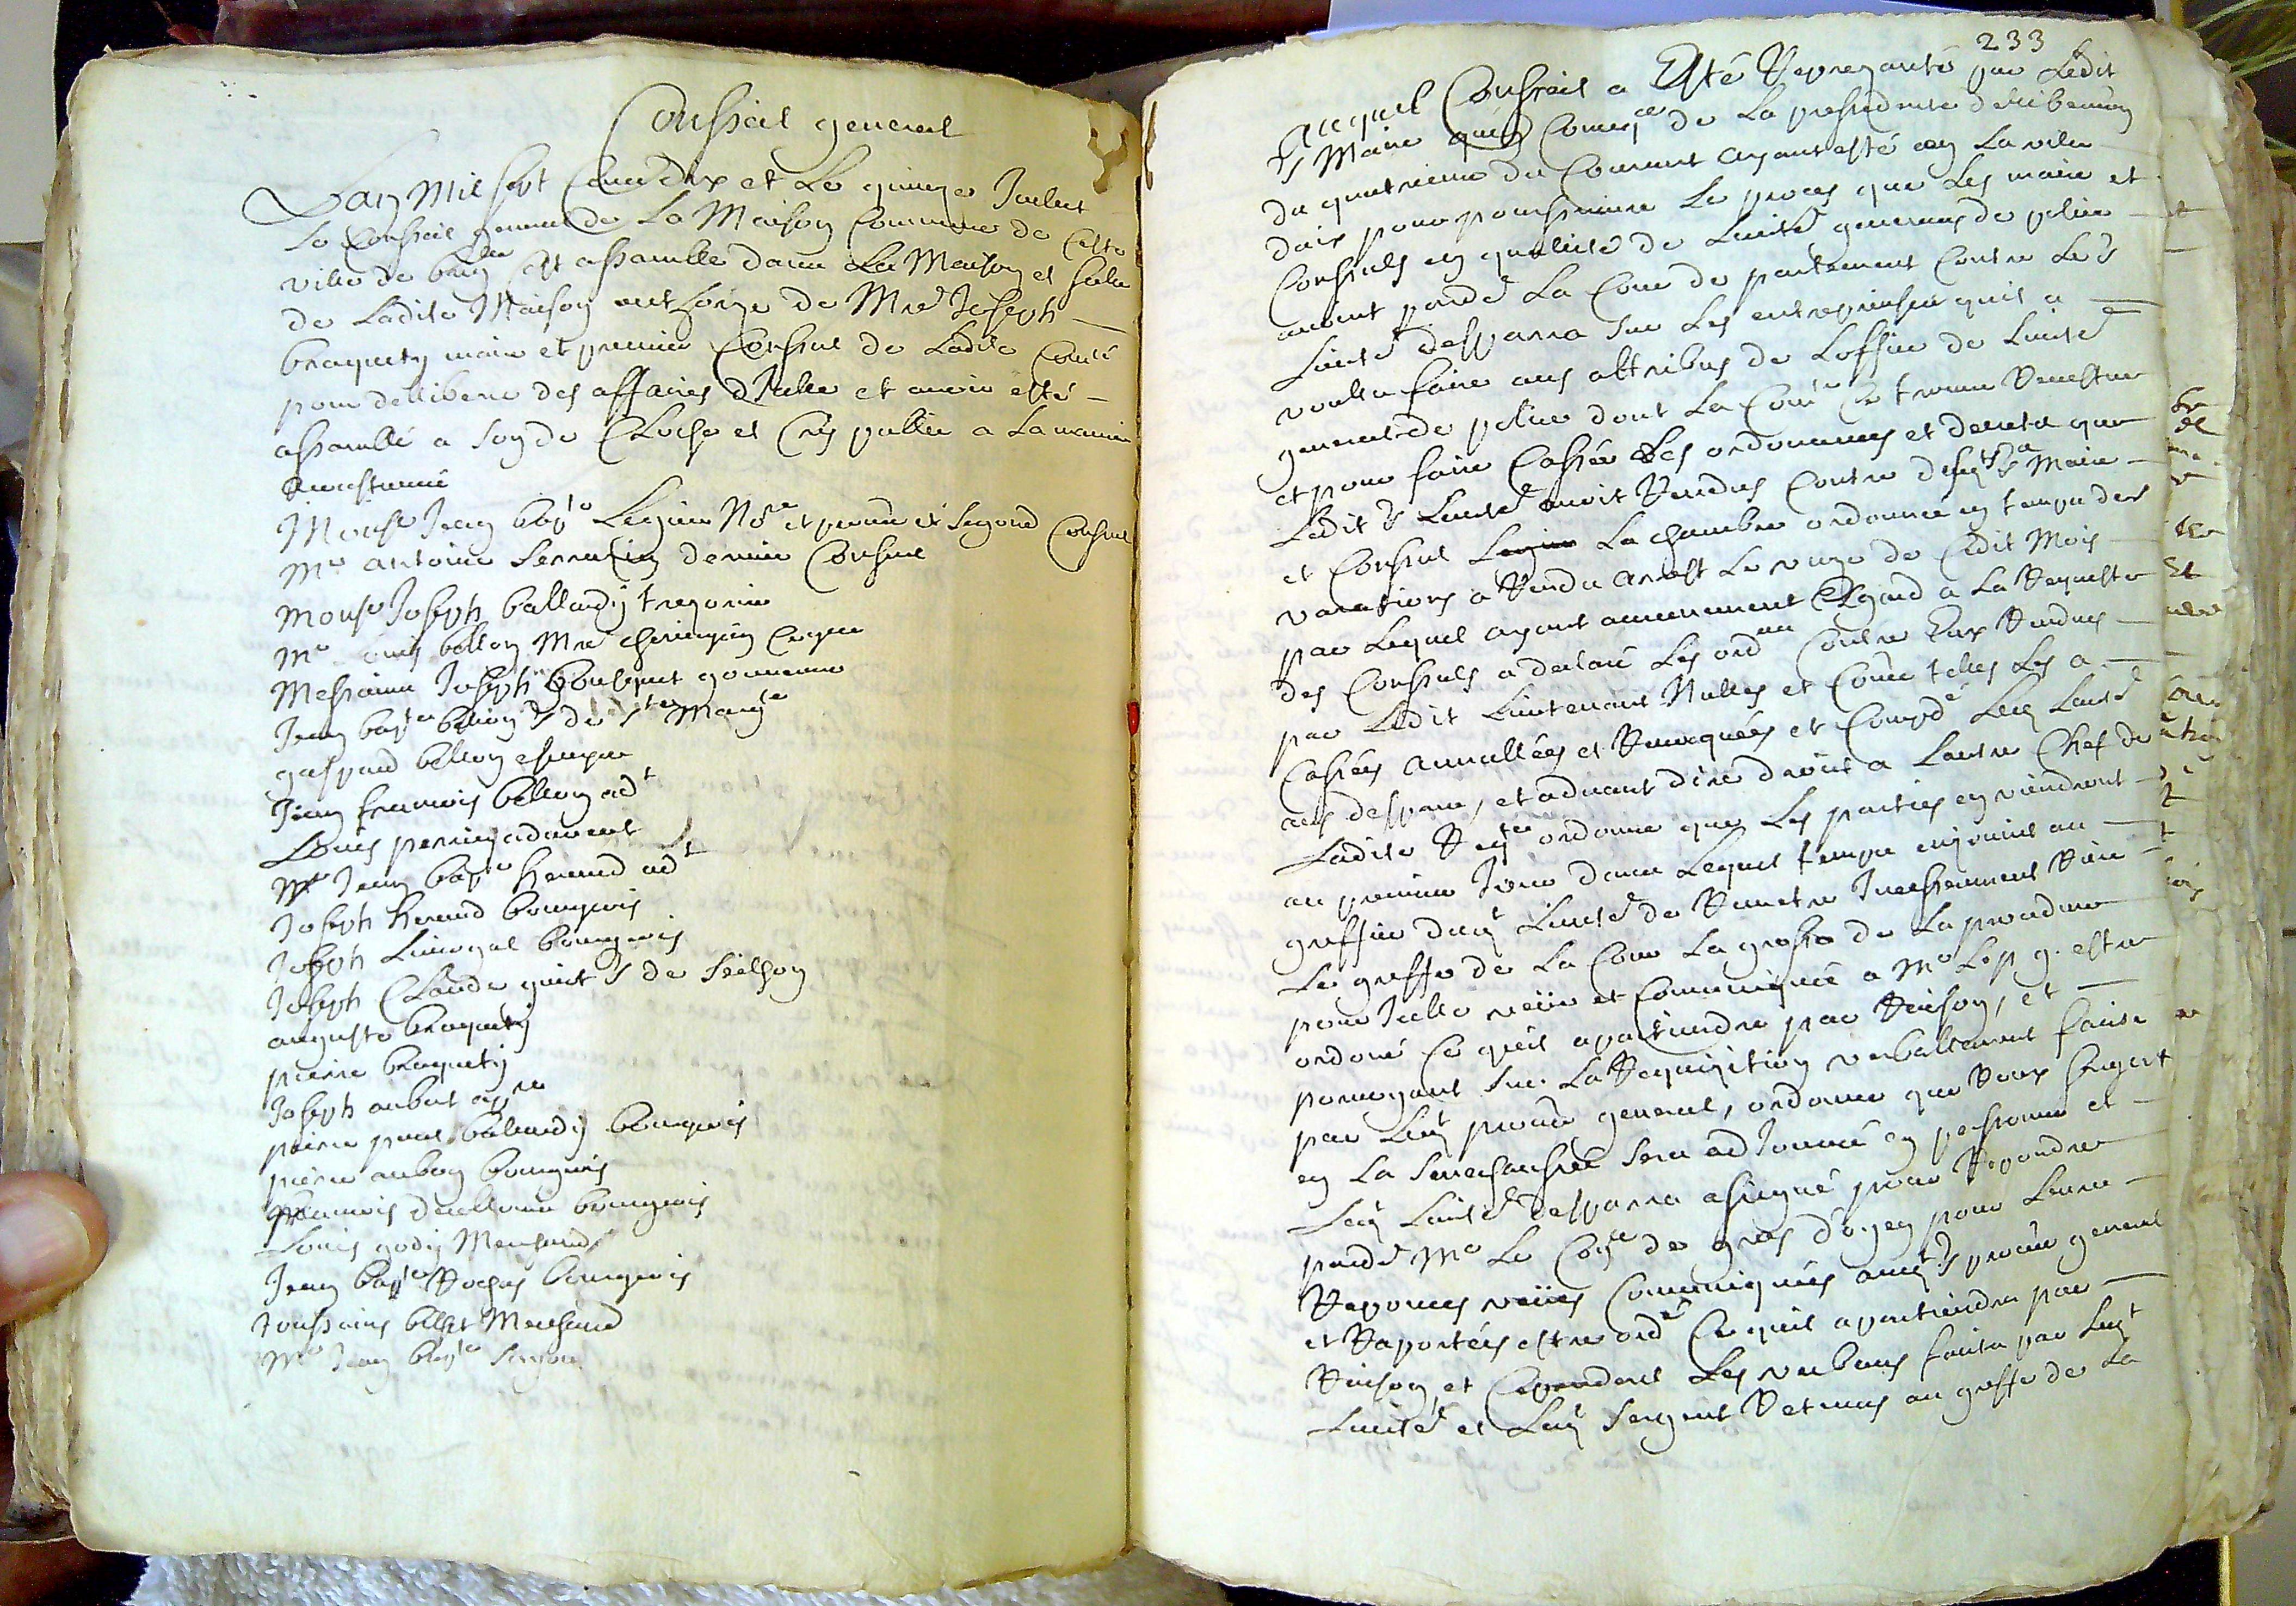 Conseil general
Lan Mil sept Cens dix et Le quinze Juillet
Le Conseil general de La Maison Commune de Ceste
ville de brig^lle est assamblé dans La Maison et sale
de Ladite Maison authorize de M^re Joseph
braquety maire et premier Consul de Ladite Com^té
pour delliberer des affaires dJcelle et avoir esté
assamblé a son de Cloche et Cry public a La maniere
accoustumée
Mons^r Jean bap^te Legier No^re et segond Consul
M^e antoine serraty dernier Consul
Mons^r Joseph ballardy tresorier
M^e Louis bellon M^re chirurgien
Messire Joseph bousquet
Jean bap^te bellon s^r de s^te Marg^te
gaspard bellon
Jean francois bellon ad^t
Louis perrin advocat
M^e Jean bap^te heraud ad^t
Joseph heraud bourgeois
Joseph bourgeois
Joseph Claude s^r de
auguste braquety
pierre braquety
Joseph aubert
pierre paul ballardy bourgeois
pierre bourgeois
francois bourgeois
Louis Marchand
Jean bap^te Rochas bourgeois
Toussaint Marchand
M^e Jean bap^te
233
Auquel Conseil a Esté Represanté par Ledit
s^r Maire que en Conseq^ce de La presedente deliberation
du quatrieme du Courant ayant esté en La ville
daix pour poursuivre Le proces que Les maire et
Consuls en quallité de Lieut^t generaus de police
avoint pard^t La Cour de parlement Contre Le s^r
Lieut^t desparra sur Les entreprises quil a
voulu faire aus attribus de Loffice de Lieut^t
general de police dont La Com^té Ce treuve Revestue
et pour faire Casser Les ordonnances et decrets que
Ledit s^r Lieut^t avoit Rendus Contre Lesd^ts s^rs Maire
et Consul La chambre ordonnée en temps des
vacations a Rendu arrest Le onze de Cedit Mois
par Lequel ayant aucunement Esgard a La Requeste
des Consuls a declaré Les ord^ces Contre Eux Rendues
par Ledit Lieutenant Nulles et Come telles Les a
Cassées annullées et Revoquées et Comp^dé Led^t Lieut^t
aus despans, et advant dire droit a Lautre Chef de
Ladite Req^te ordonne que Les parties en viendront
au premier Jour dans Lequel temps enjoint au
greffier dud^t Lieut^t de Remetre Jncessamment Riere
Le greffe de La Cour La grosse de La procedure
pour Jcelle veüe et Communiquée a M^r Le p. g. estre
ordoné Ce quil apartiendra par Raison, et
pourvoyant sur La Requizition verballement faite
par Led^t procur^r general, ordonne que Roux sergent
en La seneschaussée sera adJourné en personne et
Led^t Lieut^t desparra assigné pour Repondre
pard^t M^r Le Con^er de gras pour Leurs
Reponces veües Communiquées aud^t s^r procur^r general
et Raportées estre ord^é Ce quil apartiendra par
Raison, et Cependant Les verbaus faits par Led^t
Lieut^t et Led^t sergent Retenus au greffe de La